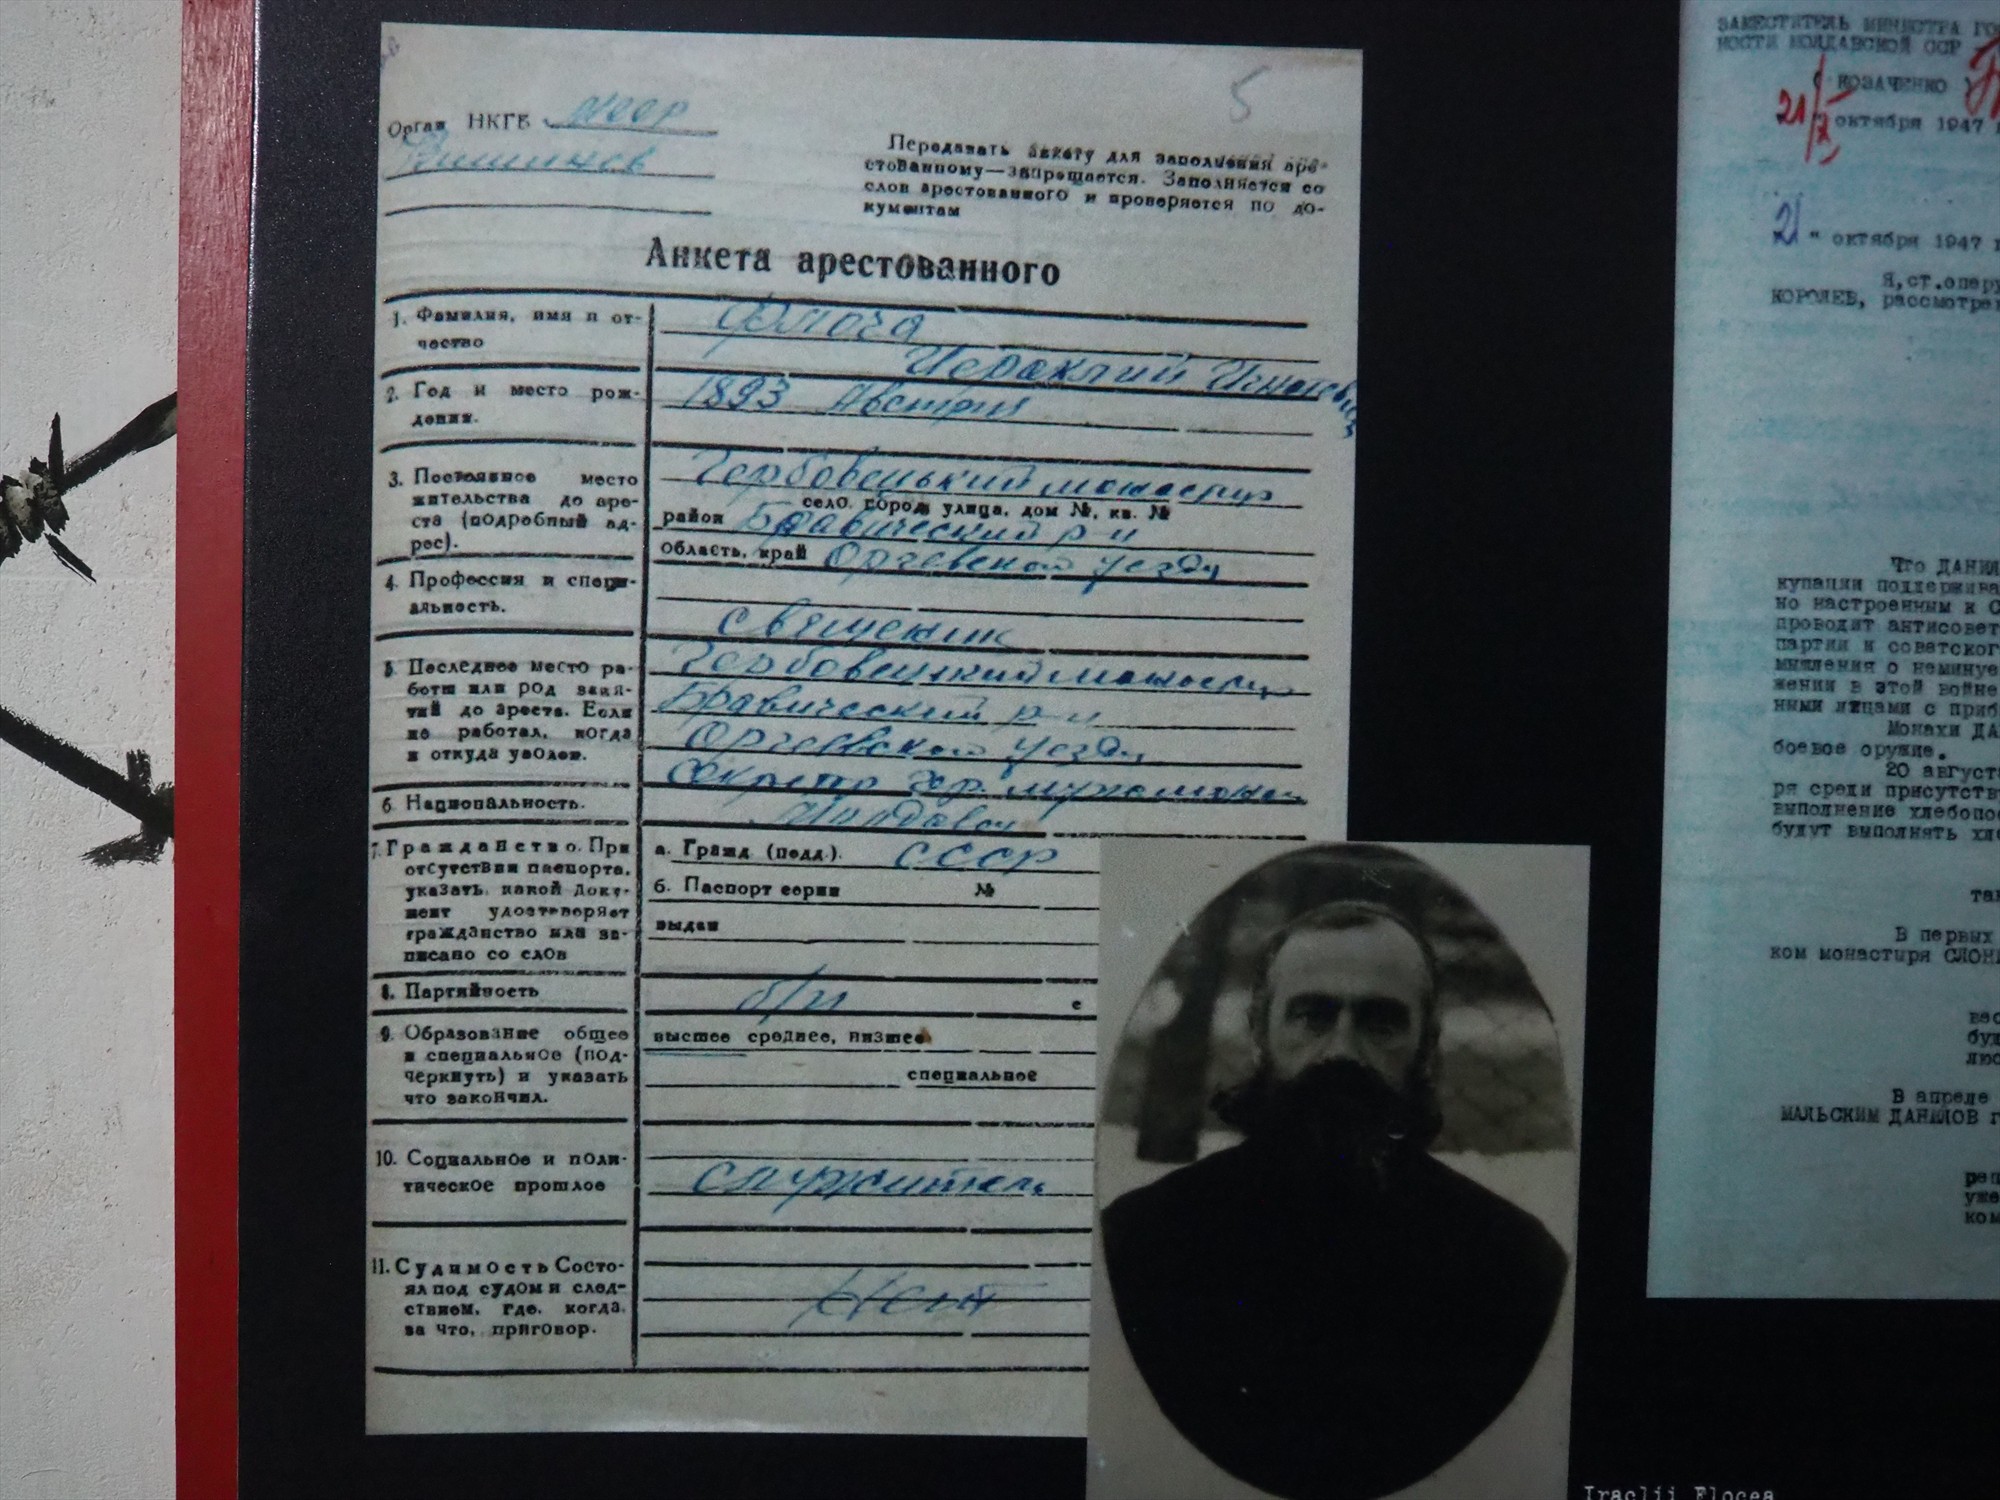 5
Орган НКГБ МССР
Кишинев
Передавать анкету для заполнения аре-
стованному—запрещается. Заполняется со
слов арестованного и проверяется по до-
кументам
Анкета арестованного
1. Фамилия, имя и от-
чество
Флоча
Иераклий Игнатьевич
2. Год и место рож-
дения.
1893 Австрия
3. Постоянное место
жительства до аре-
ста (подробный ад-
рес).
Гербовецький монастир
село, город, улица, дом №, кв. №
район Бравический р-н
область, край Оргеевского уезда
4. Профессия и специ-
альность.
священик
5. Последнее место ра-
боты или род заня-
тий до ареста. Если
не работал, когда
и откуда уволен.
Гербовецкий монастир
Бравический р-н
Оргеевского уезда
6. Национальность.
Молдаван
7. Гражданство. При
отсутствии паспорта,
указать, какой доку-
мент удостоверяет
гражданство или за-
писано со слов
а. Гражд (подд.). СССР
б. Паспорт серии №
выдан
8. Партийность
б/п с
9. Образование общее
и специальное (под-
черкнуть) и указать
что закончил.
высшее среднее, низшее
специальное
10. Социальное и поли-
тическое прошлое
служитель
11. Судимость Состо-
ял под судом и след-
ствием, где, когда,
за что, приговор.
Нет
Iraclii Flocea
ЗАМЕСТИТЕЛЬ МИНИСТРА ГОС
НОСТИ МОЛДАВСКОЙ ССР
( КОЗАЧЕНКО )
21/X октября 1947 г
21 " октября 1947 г
Я, ст.опер
КОРОЛЕВ, рассмотрев
Что ДАНИЛ
купации поддержива
но настроенным к С
проводит антисовет
партии и советског
мышления о неминуе
жении в этой войне
ными лицами с приб
Монахи ДА
боевое оружие.
20 август
ря среди присутств
выполнение хлебопос
будут выполнять хл
так
В первых
ком монастыря СЛОН
вес
буд
люс
В апреле
МАЛЬСКИМ ДАНИЛОВ г
реп
уже
ком